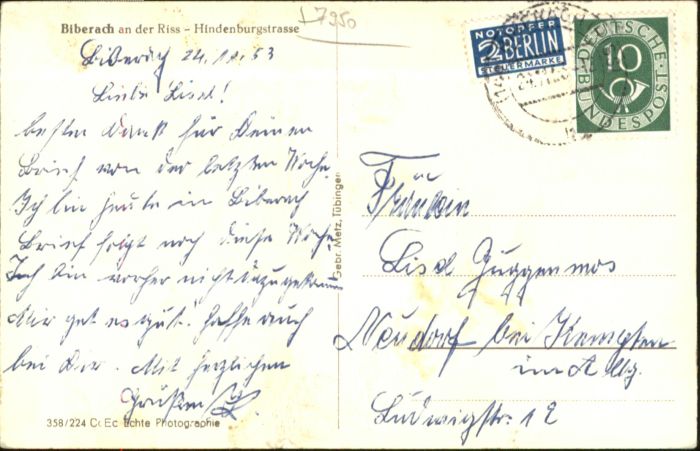 Biberach an der Riss – Hindenburgstrasse
7950
Biberach 24.10.53
Liebe Lisel!
besten Dank für Deinen
Brief von der letzten Woche.
Ich bin heute in Biberach
Brief folgt noch diese Woche.
Ich bin vorher nicht dazugekommen
Mir get es gut. hoffe auch
bei Dir. Mit herzlichen
Grüßen
358/224 Echte Photographie
Gebr. Metz, Tübingen
NOTOPFER
2 BERLIN
STEUERMARKE
DEUTSCHE
10
BUNDESPOST
Fräulein
Lisel Guggenmos
Neudorf bei Kempten
im Allg.
Ludwigstr. 12